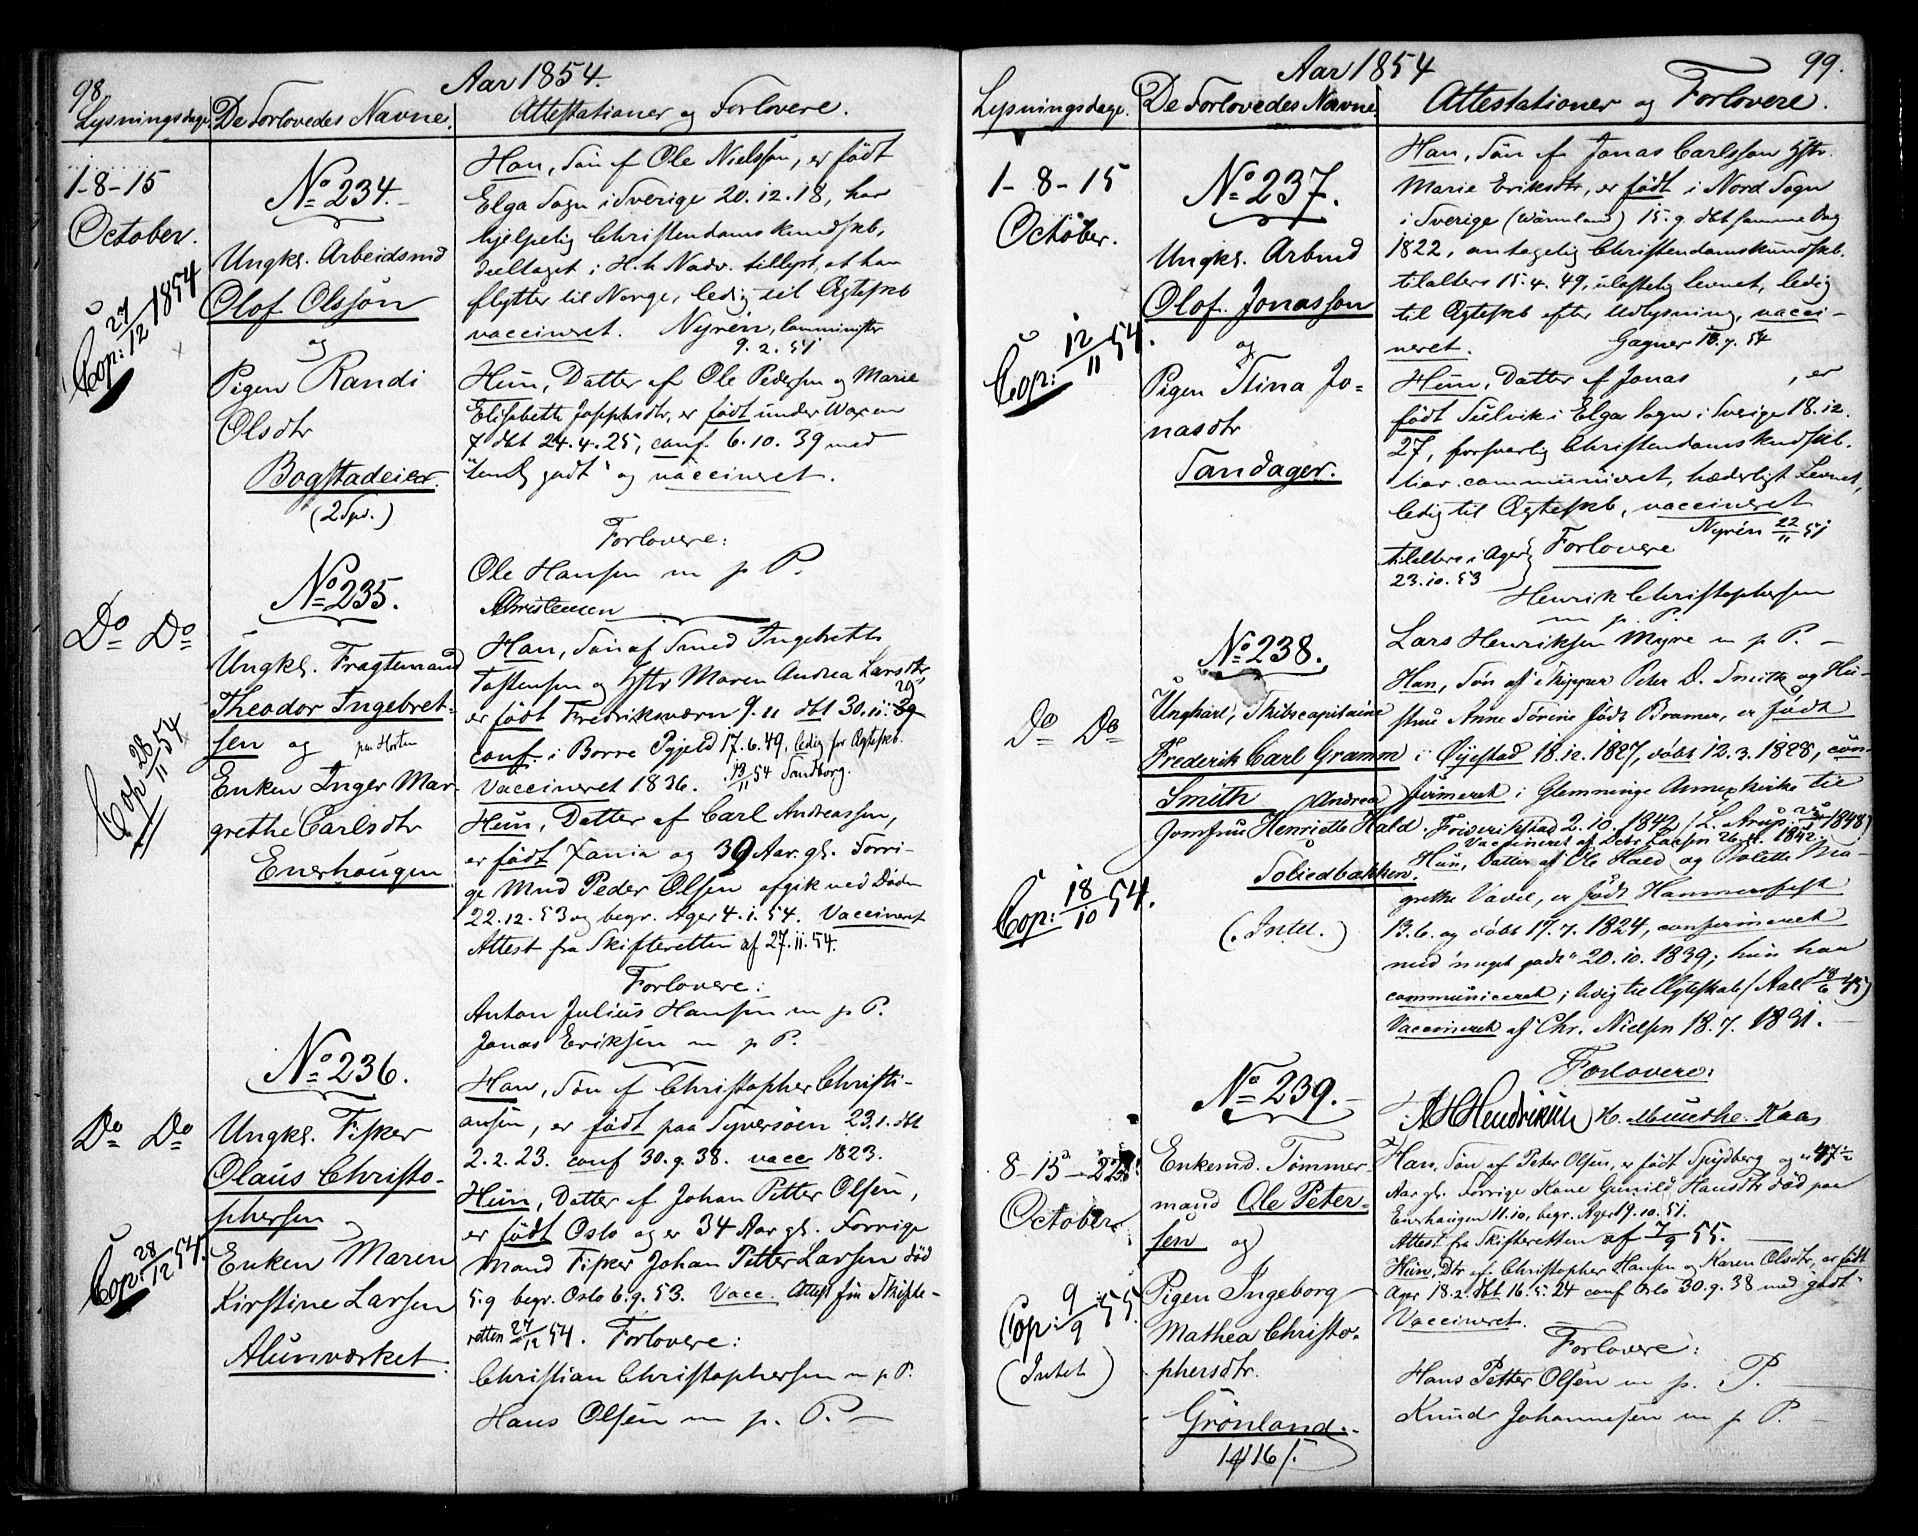 98.
Aar 1854.
Lysningsdage. De Forlovedes Navne. Attestationer og Forlovere.
1-8-15
October.
Cop: 27/12 1854
No 234.
Ungkl. Arbeidsmd
Olof Olsson
og
Pigen Randi
Olsdtr
Bogstadeier.
(2 Spd.)
Han, Søn af Ole Nielsson, er født
Elga Sogn i Sverige 20.12.18, har
hjelpelig Christendomskundskb,
deeltaget i H. h Nadv. tillyst, at han
flytter til Norge, ledig til Ægteskb
vaccineret. Nyrén, Comminister
9.2.51
Hun, Datter af Ole Pedersen og Marie
Elisabeth Josephsdtr, er født under
7 dbt 24.4.25, conf. 6.10.39 med
godt" og vaccineret.
Forlovere:
Ole Hansen m p P.
AChristensen
Do Do
Cop 28/11 54
No 235.
Ungkl. Fragtemand
Theodor Ingebret-
sen og
Enken Inger Mar-
grethe Carlsdtr
Enerhaugen
Han, Søn af Smed Ingebreth
Tostensen og Hstr Maren Andrea Larsdtr,
er født Fredriksværn 9.11 dbt 30.11. 29
conf. i Borre Pgjeld 17.6.49, ledig for Ægteskb.
Vaccineret 1836. 13/11 54 Sandborg.
Hun, Datter af Carl Andreassen,
er født Xania og 39 Aar gl. Forri-
ge Mnd Peder Olsen afgik ved Døden
22.12.53 og begr. Ager 4.1.54. Vaccineret
Attest fra Skifteretten af 27.11.54.
Forlovere:
Anton Julius Hansen m p P.
Jonas Eriksen m p P.
Do Do
Cop: 28/12 54.
No 236.
Ungkl. Fisker
Olaus Christo-
phersen
Enken Maren
Kirstine Larsen
Alunværket.
Han, Søn af Christopher Christi-
ansen, er født paa Syversøen 23.1. dbt
2.2.23. conf 30.9.38. vacc 1823.
Hun, Datter af Johan Petter Olsen,
er født Oslo og er 34 Aar gl. Forrige
Mand Fisker Johan Petter Larsen død
5.9 begr. Oslo 6.9.53. Vacc. Attest fra Skifte-
retten 27/12 54. Forlovere:
Christian Christophersen m p P.
Hans Olsen m p. P.
99.
Aar 1854
Lysningsdage. De Forlovedes Navne. Attestationer og Forlovere.
1-8-15
October.
Cop: 12/11 54.
No 237.
Ungkl. Arbmd
Olof Jonasson
og
Pigen Stina Jo-
nasdtr
Sandager.
Han, Søn af Jonas Carlsson Hstr.
Marie Eriksdtr, er født i Nord Sogn
i Sverige (Wärmland) 15.9. dbt samme Dag
1822, antagelig Christendomskundskb.
tilalters 15.4.49, ulastelig levnet, ledig
til Ægteskb efter Udlysning, vacci-
neret. Gagner 18.9.54
Hun, Datter af Jonas , er
født Sulvik i Elga Sogn i Sverige 18.12.
27, forsvarlig Christendomskndskb.
har communiceret, hæderligt Levnet,
ledig til Ægteskb, vaccineret
Nyrén 22/11 51
tilalters i Ager
23.10.53
Forlovere
Henrik Christophersen
m p. P.
Lars Henriksen Myre m p P.
Do Do
Cop: 18/10 54.
No 238.
Ungkarl, Skibscapitaine
Frederik Carl Gramm
Smith
Jomfru Henriette Andrea Hald.
(Intet.)
Han, Søn af Skipper Peter D. Smith og Hu-
stru Anne Sørine født Bramer, er født
i Øyestad 18.12.1827, døbt 12.3.1828, con-
firmeret i Glemminge Annexkirke til
Friderikstad 2.10.1842 (L. Arup. 1848)
Hun, Datter af Ole Hald og Bolette Ma-
grethe Vavel, er født Hammerfest
13.6. og døbt 17.7.1824, confirmeret
med "meget godt" 20.10.1839; hun har
communiceret; ledig til Ægteskab (Aall 18/6 45)
Vaccineret af Chr. Nielsen 18.7.1831.
Forlovere:
AHHendriksen H. Munthe-Kaas
8-15-22
October.
Cop: 9/9 55.
(Intet)
No 239.
Enkemd. Tømmer-
mand Ole Peter-
sen og
Pigen Ingeborg
Mathea Christo-
phersdtr.
Grönland.
Han, Søn af Peter Olsen, er født Spydberg og er 47 1/2
Aar gl. Forrige Kone Gunild Hansdtr død paa
Enerhaugen 11.10, begr. Ager 19.10.51.
Attest fra Skifteretten af 7/9 55.
Hun, Dtr af Christopher Hansen og Karen Olsdtr, er født
Ager 18.2. dbt 16.5.24 conf Oslo 30.9.38 med "godt"
Vaccineret.
Forlovere:
Hans Petter Olsen m p. P.
Knud Johannesen m p P.